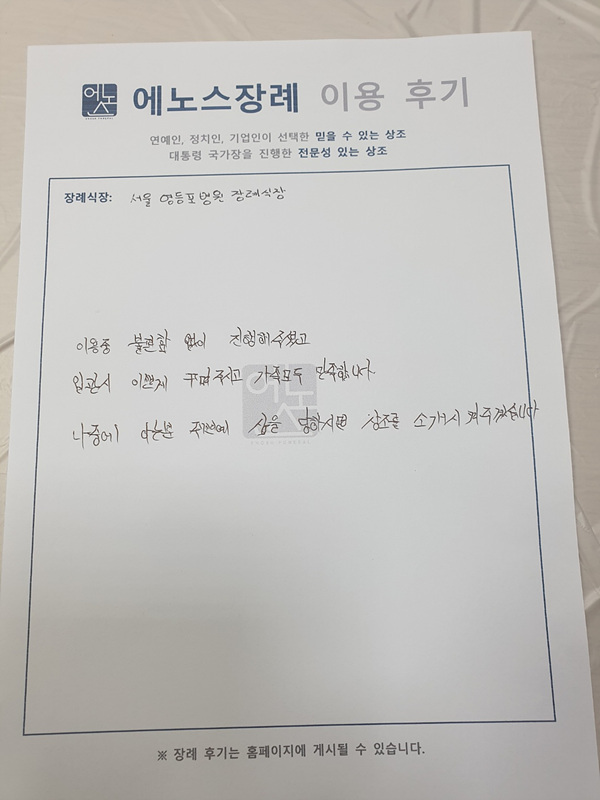 에노스장례 이용 후기
연예인, 정치인, 기업인이 선택한 믿을 수 있는 상조
대통령 국가장을 진행한 전문성 있는 상조
장례식장: 서울 영등포병원 장례식장
이용중 불편함 없이 진행해주셨고
입관시 이쁘게 꾸며주시고 가족모두 만족합니다.
나중에 아는분 주변에 상을 당하시면 상조를 소개시켜주겠습니다
※ 장례 후기는 홈페이지에 게시될 수 있습니다.